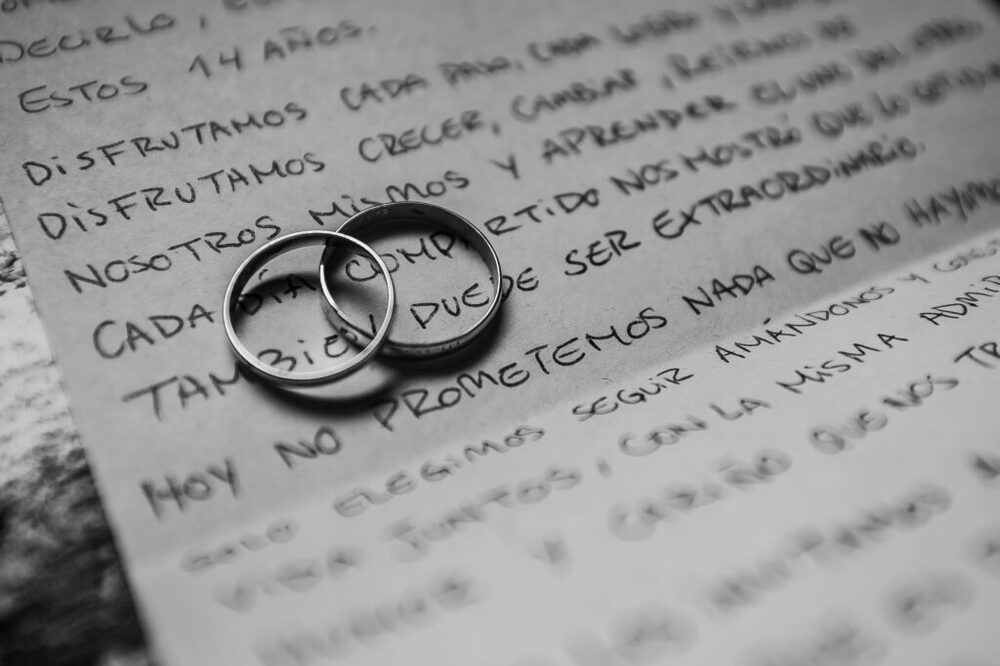 DECIRLO,
ESTOS 14 AÑOS.
DISFRUTAMOS CADA PASO, CADA LOGRO Y
DISFRUTAMOS CRECER, CAMBIAR, REÍRNOS DE
NOSOTROS MISMOS Y APRENDER EL UNO DEL OTRO.
CADA DÍA COMPARTIDO NOS MOSTRÓ QUE LO COTIDIANO
TAMBIÉN PUEDE SER EXTRAORDINARIO.
HOY NO PROMETEMOS NADA QUE NO HAYAMOS
SOLO ELEGIMOS SEGUIR AMÁNDONOS Y
VIDA JUNTOS, CON LA MISMA
Y CARIÑO QUE NOS